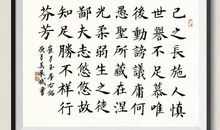 己之長施人慎
世譽不足慕唯
後動謗議庸何
愚聖所藏在涅
光柔弱生之徒
鄙夫志悠悠故
知足勝不祥行
芬芳
崔子玉座右銘